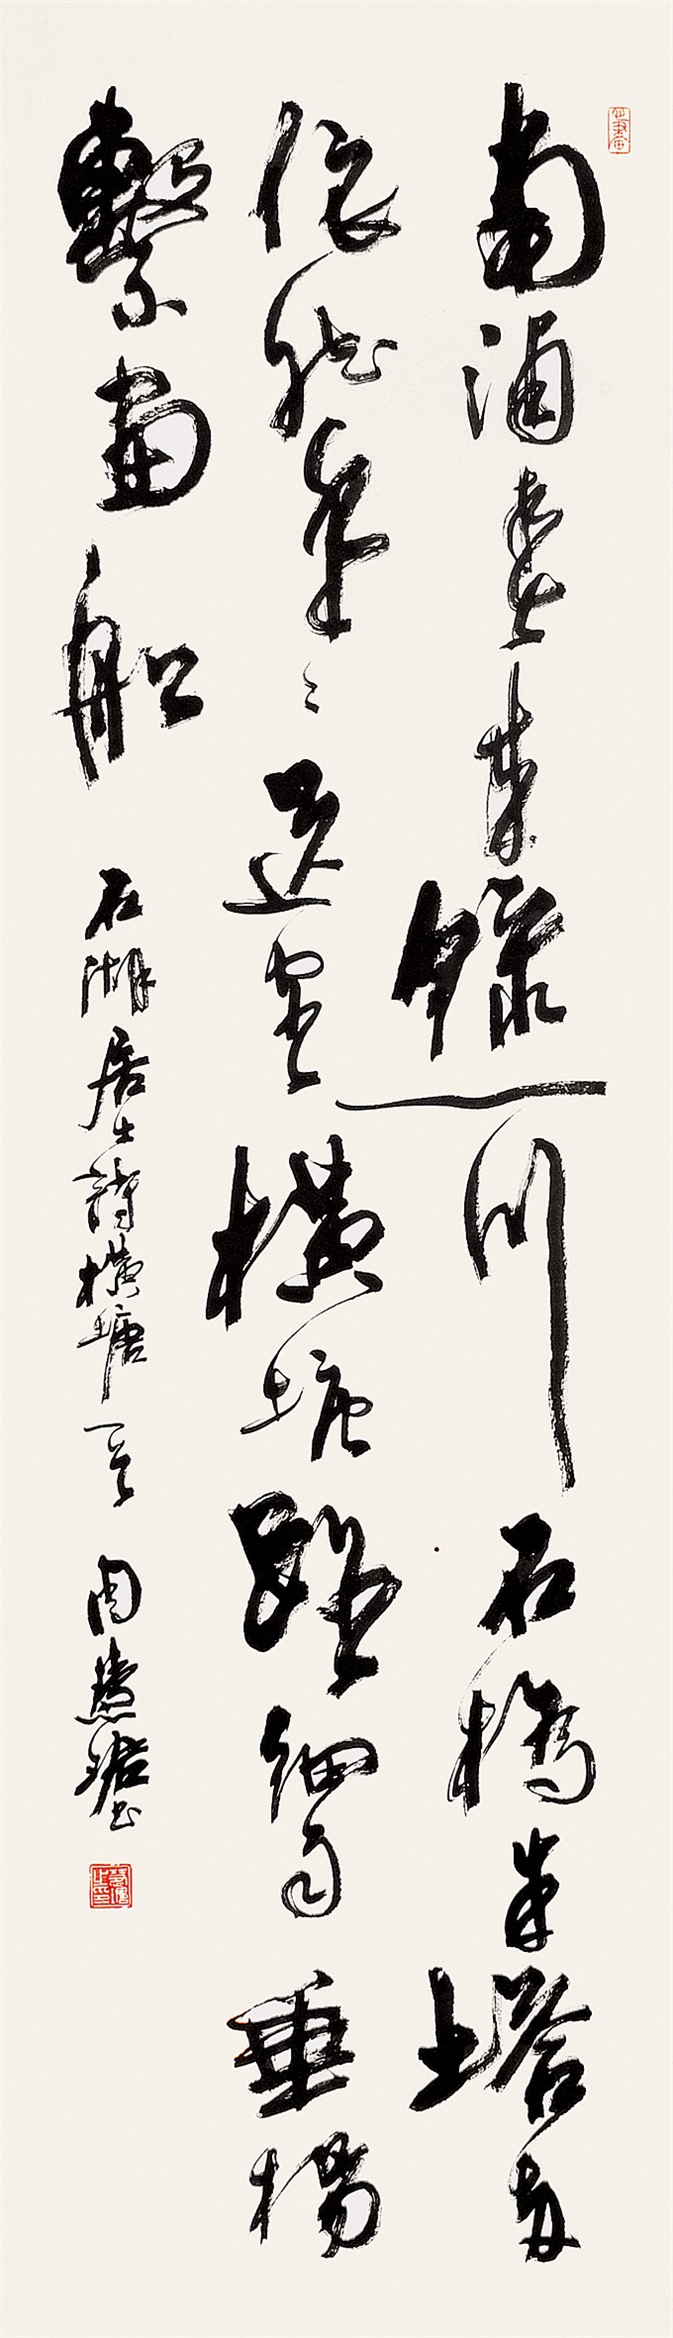 南浦春來綠一川石橋朱塔兩
依然年々送客橫塘路細雨垂楊
繫畫船
石湖居士詩橫塘一首 周慧珺書